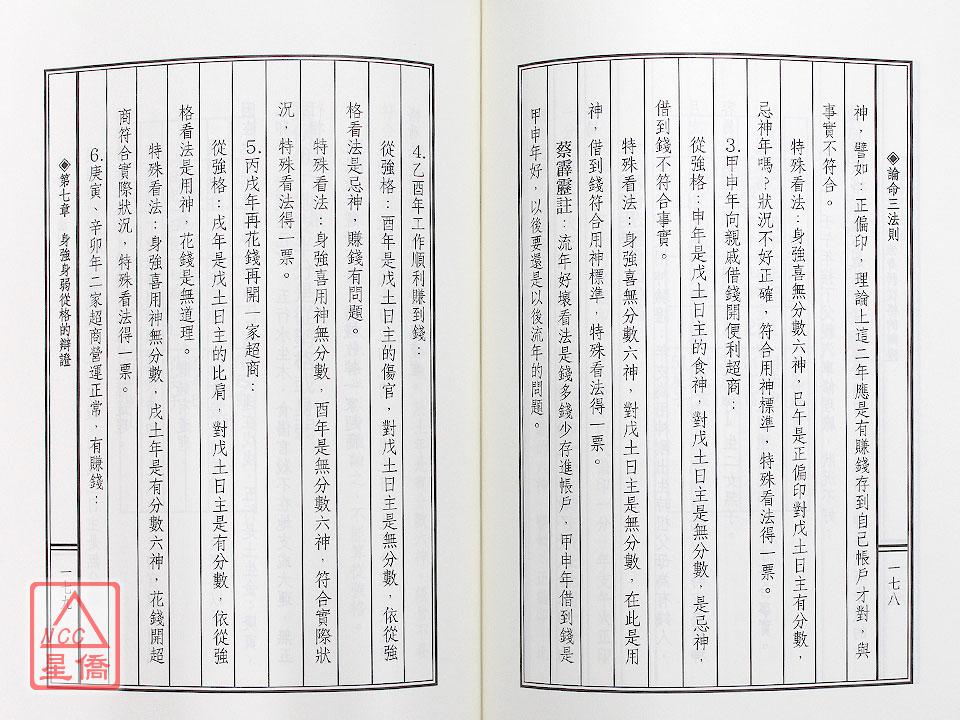 ◈論命三法則
一七八
神，譬如：正偏印，理論上這二年應是有賺錢存到自己帳戶才對，與
事實不符合。
特殊看法：身強喜無分數六神，巳午是正偏印對戊土日主有分數，
忌神年嗎？狀況不好正確，符合用神標準，特殊看法得一票。
3.甲申年向親戚借錢開便利超商：
從強格：申年是戊土日主的食神，對戊土日主是無分數，是忌神，
借到錢不符合事實。
特殊看法：身強喜無分數六神，對戊土日主是無分數，在此是用
神，借到錢符合用神標準，特殊看法得一票。
蔡霹靂註：流年好壞看法是錢多錢少存進帳戶，甲申年借到錢是
甲申年好，以後要還是以後流年的問題。
4.乙酉年工作順利賺到錢：
從強格：酉年是戊土日主的傷官，對戊土日主是無分數，依從強
格看法是忌神，賺錢有問題。
特殊看法：身強喜用神無分數，酉年是無分數六神，符合實際狀
況，特殊看法得一票。
5.丙戌年再花錢再開一家超商：
從強格：戌年是戊土日主的比肩，對戊土日主是有分數，依從強
格看法是用神，花錢是無道理。
特殊看法：身強喜用神無分數，戌土年是有分數六神，花錢開超
商符合實際狀況，特殊看法得一票。
6.庚寅、辛卯年二家超商營運正常，有賺錢：
◈第七章　身強身弱從格的辯證
一七九
NCC
星僑